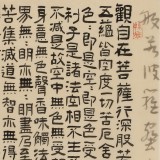 般若波羅蜜
觀自在菩薩行深般若
五蘊皆空度一切苦厄舍
色色即是空空即是色
利子是諸法空相不生
不減是故空中無色無受
意無色聲香味觸法
苦集滅道無智亦無得